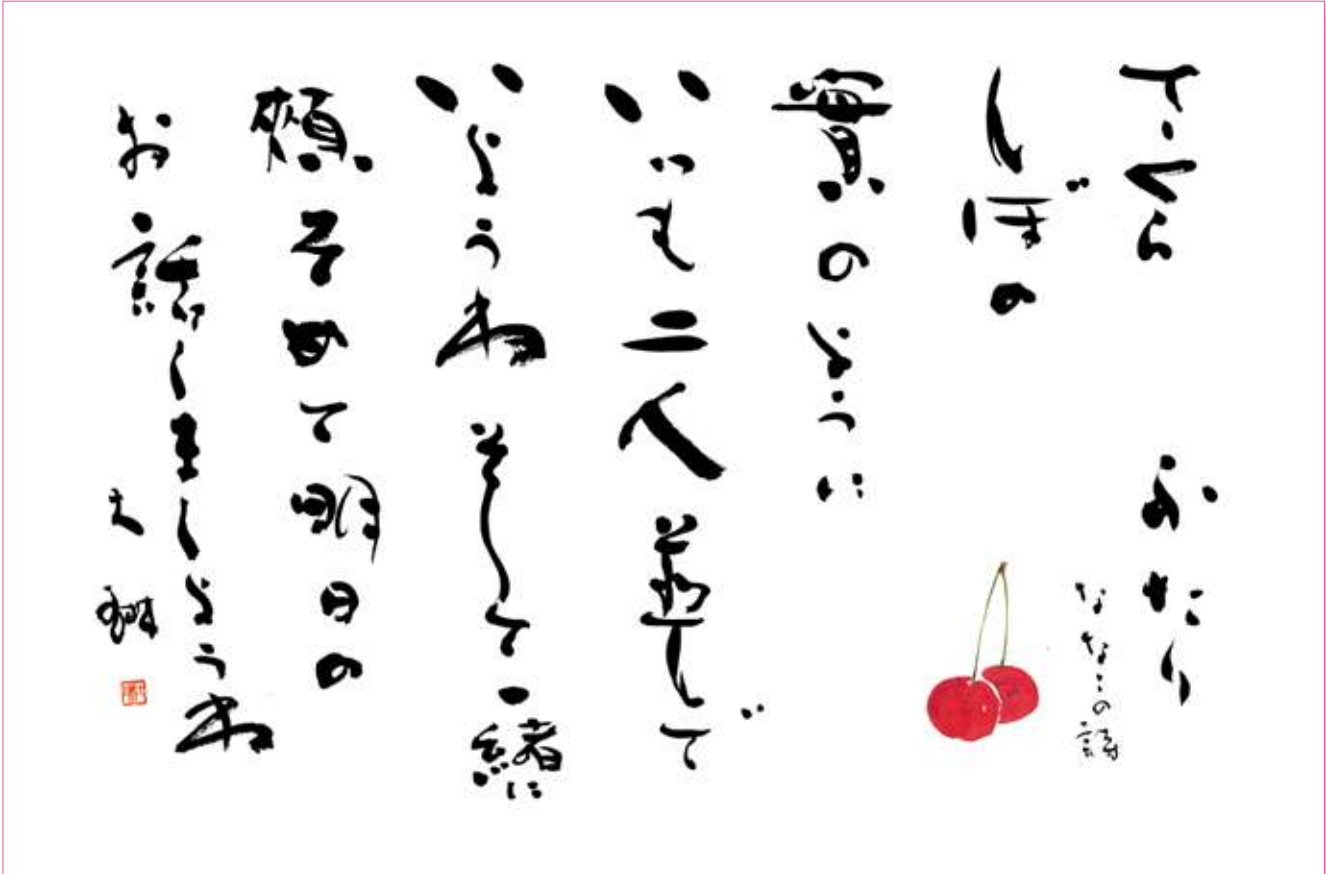 ふたり
ななこの詩
さくら
んぼの
實のように
いつも二人並んで
いようね そして一緒に
頬そめて明日の
お話しましょうね